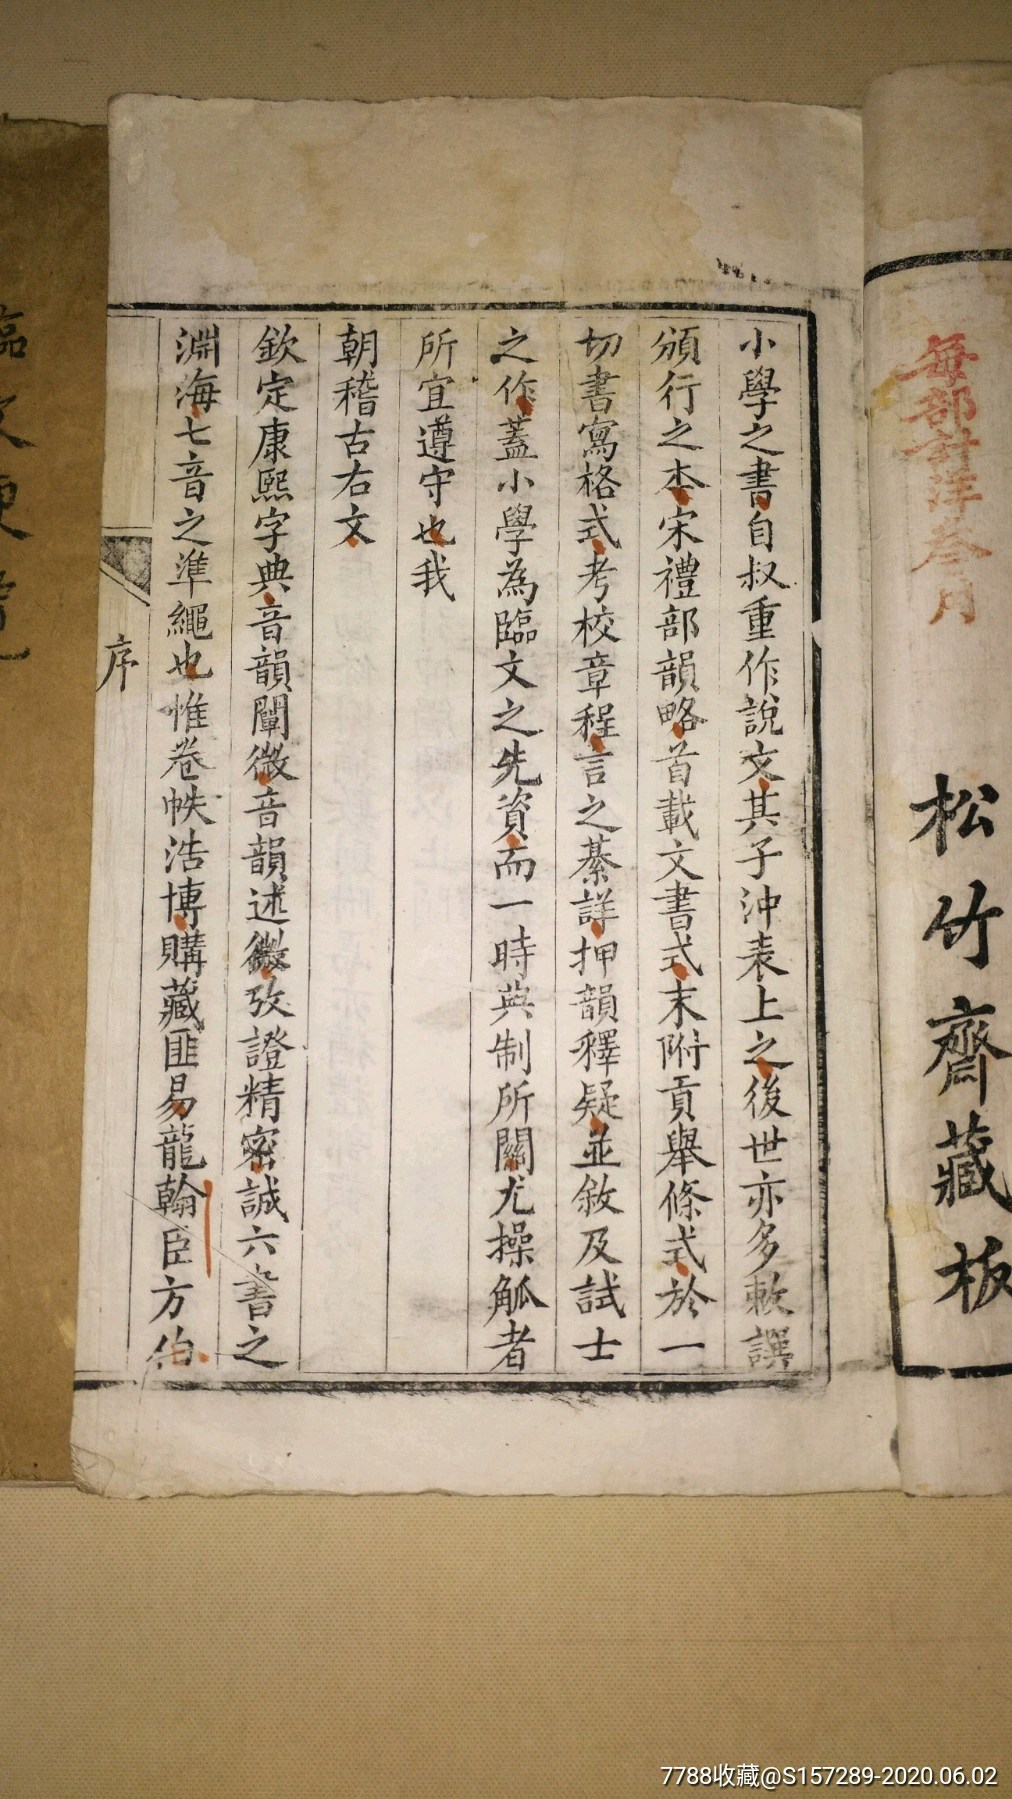 每部計洋叁月
松竹齋藏板
小學之書自叔重作說文其子沖表上之後世亦多敕譔
頒行之本宋禮部韻略首載文書式末附貢舉條式於一
切書寫格式考校章程言之綦詳押韻釋疑並敘及試士
之作蓋小學為臨文之先資而一時典制所關尤操觚者
所宜遵守也我
朝稽古右文
欽定康熙字典音韻闡微音韻述微攷證精密誠六書之
淵海七音之準繩也惟卷帙浩博購藏匪易龍翰臣方伯
序
臨文便覽
7788收藏@S157289-2020.06.02